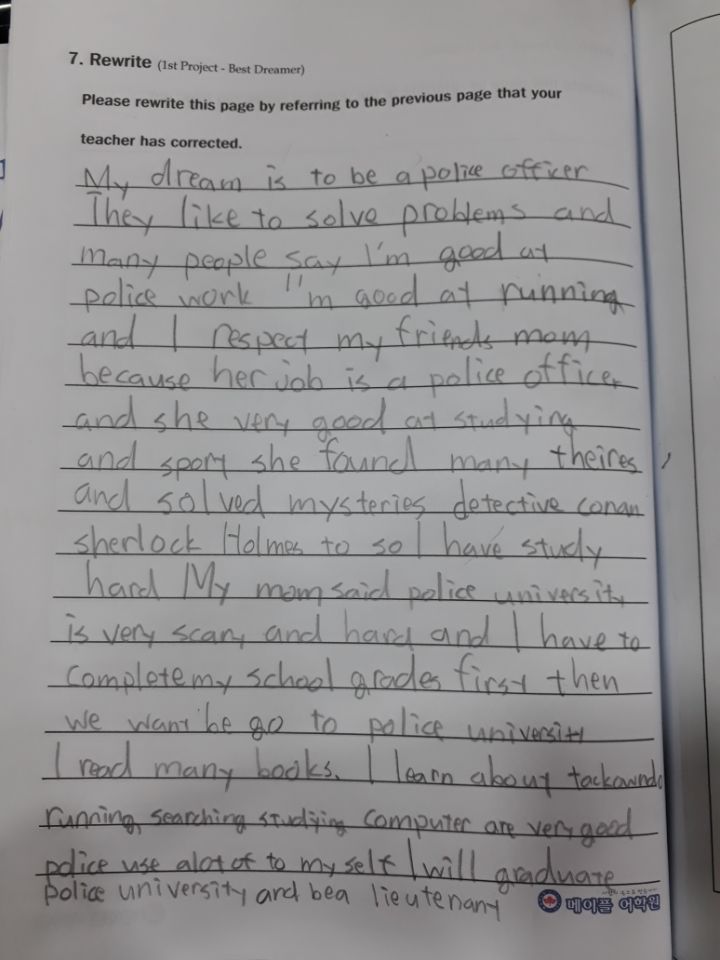 7. Rewrite (1st Project - Best Dreamer)
Please rewrite this page by referring to the previous page that your
teacher has corrected.
My dream is to be a police officer
They like to solve problems and
many people say I'm good at
police work I'm good at running
and I respect my friends mom
because her job is a police officer
and she very good at studying
and sport she found many theires
and solved mysteries detective conan
sherlock Holmes to so I have study
hard My mom said police university
is very scary and hard and I have to
complete my school grades first then
we want be go to police university
I read many books. I learn about tackowndo
running, searching studying computer are very good
police use alot of to my self I will graduate
police university and be a lieutenany
메이플 어학원